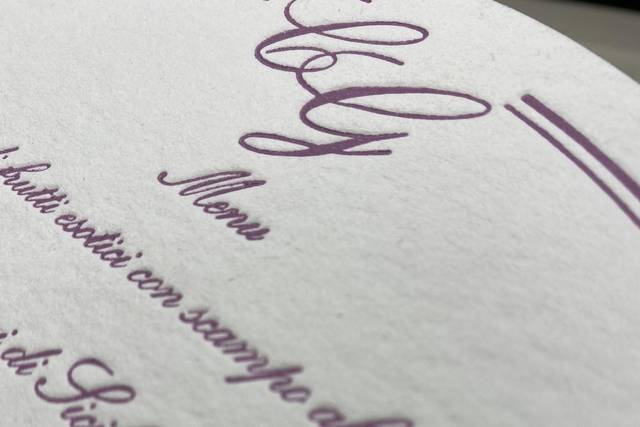 G
Menu
frutti esotici con scampo al
di